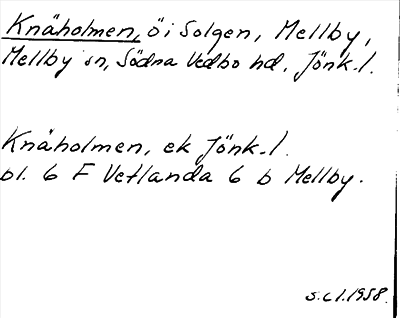 Knäholmen, ö i Solgen, Mellby,
Mellby sn, Södra Vedbo hd, Jönk. l.
Knäholmen, ek Jönk. l.
bl. 6 F Vetlanda 6 b Mellby.
S.C.l. 1958.